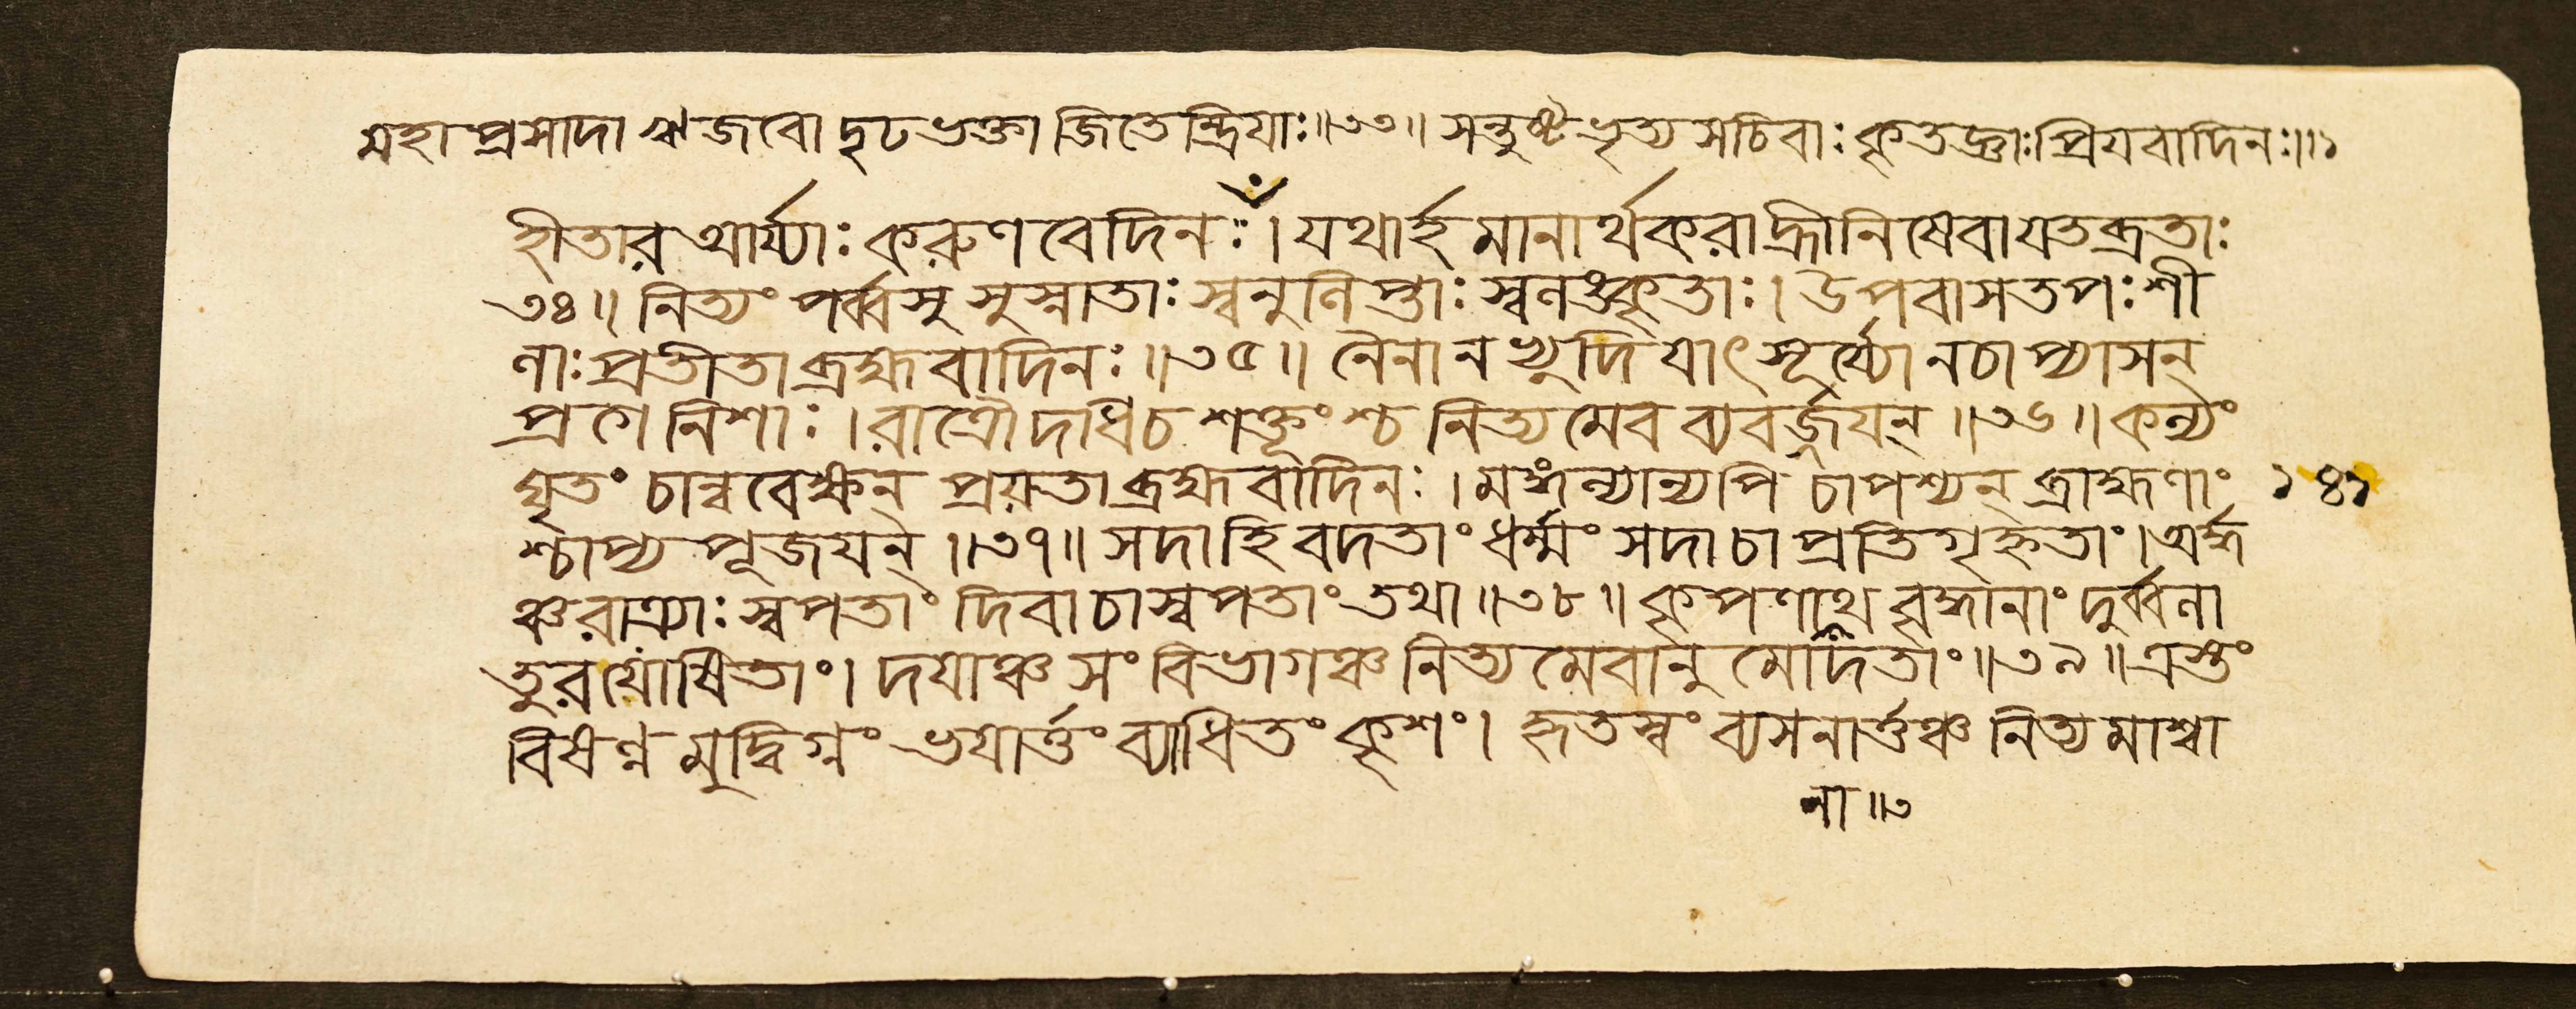 মহাপ্রসাদা ঋজবো দৃঢভক্তা জিতেন্দ্রিযাঃ॥৩৩॥ সন্তুষ্টভৃত্যসচিবাঃ কৃতজ্ঞাঃ প্রিযবাদিনঃ॥১
হীতার আর্য্যাঃ করুণবেদিনঃ। যথার্হমানার্থকরা হ্রীনিষেবা যতব্রতাঃ
৩৪॥ নিত্যং পর্ব্বসু সুস্নাতাঃ স্বনুলিপ্তাঃ স্বলঙ্কৃতাঃ। উপবাসতপঃশী
লাঃ প্রতীতা ব্রহ্মবাদিনঃ॥৩৫॥ নৈনানভ্যুদিযাৎ সূর্য্যো নচাপ্যাসন্
প্রগেনিশাঃ। রাত্রৌ দধি চ শক্তূংশ্চ নিত্যমেব ব্যবর্জ্জযন্॥৩৬॥ কল্যং
ঘৃতং চান্ববেক্ষন্ প্রযতা ব্রহ্মবাদিনঃ। মঙ্গল্যান্যপি চাপশ্যন্ ব্রাহ্মণাং ১৪১
শ্চাপ্যপূজযন্॥৩৭॥ সদা হি বদতাং ধর্ম্মং সদা চাপ্রতিগৃহ্নতাং। অর্দ্ধ
ঞ্চ রাত্র্যাঃ স্বপতাং দিবা চাস্বপতাং তথা॥৩৮॥ কৃপণাথবৃদ্ধানাং দুর্ব্বলা
তুরযোষিতাং। দযাঞ্চ সংবিভাগঞ্চ নিত্যমেবানুমোদতাং॥৩৯॥ ত্রস্তং
বিষণ্নমুদ্বিগ্নং ভযার্ত্তং ব্যাধিতং কৃশং। হৃতস্বং ব্যসনার্ত্তঞ্চ নিত্যমাশ্বা
না॥৩